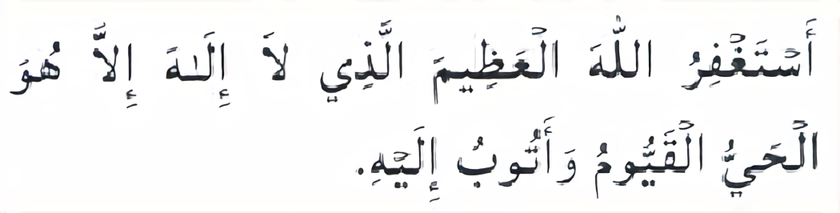 أَسْتَغْفِرُ اللّٰهَ الْعَظِيمَ الَّذِي لاَ إِلَـٰهَ إِلاَّ هُوَ
الْحَيُّ الْقَيُّومُ وَأَتُوبُ إِلَيْهِ.